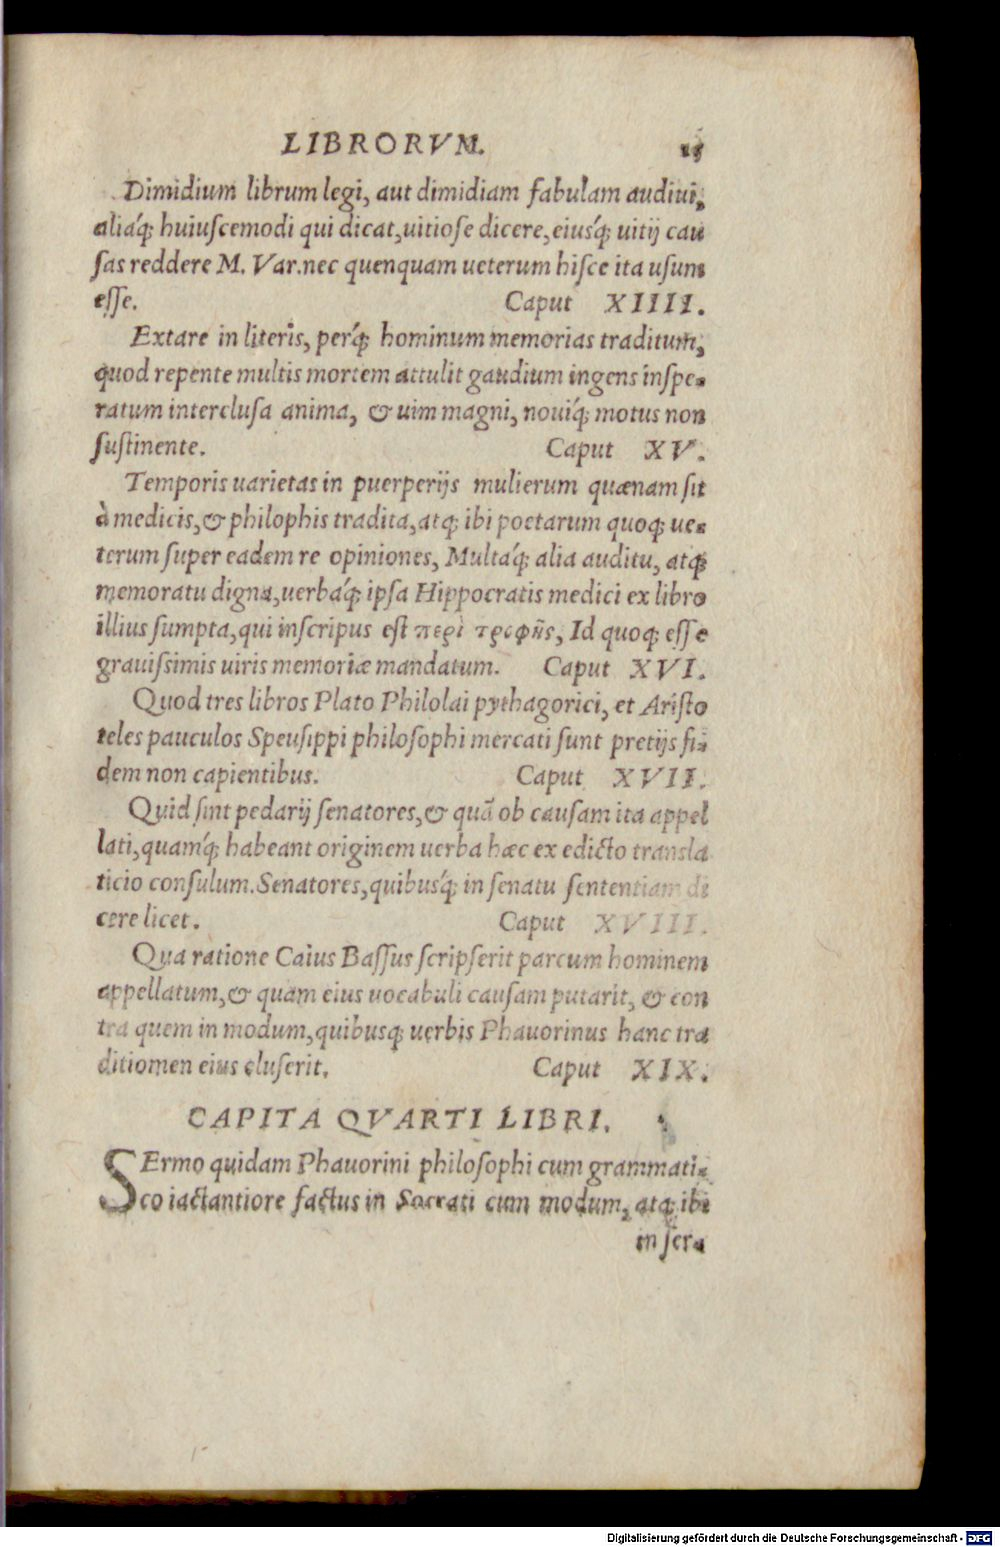 LIBRORVM. 15
Dimidium librum legi, aut dimidiam fabulam audiui,
aliáq; huiuſcemodi qui dicat,uitioſe dicere,eiuſq́; uitij cau
ſas reddere M. Var.nec quenquam ueterum hiſce ita uſum
eſſe. Caput XIIII.
Extare in literis, perq́; hominum memorias traditum,
quod repente multis mortem attulit gaudium ingens inſpe-
ratum interclusa anima, & uim magni, nouiq́; motus non
ſuſtinente. Caput XV.
Temporis uarietas in puerperijs mulierum quænam ſit
à medicis,& philophis tradita,atq; ibi poetarum quoq; ue-
terum ſuper eadem re opiniones, Multaq́; alia auditu, atq;
memoratu digna,uerbaq́; ipſa Hippocratis medici ex libro
illius ſumpta,qui inſcripus eſt περὶ τροφῆς, Id quoq; eſſe
grauiſſimis uiris memoriæ mandatum. Caput XVI.
Quod tres libros Plato Philolai pythagorici, et Ariſto
teles pauculos Speuſippi philoſophi mercati ſunt pretijs fi-
dem non capientibus. Caput XVII.
Quid ſint pedarij ſenatores,& quã ob cauſam ita appel
lati,quamq́; habeant originem uerba hæc ex edicto transla
ticio conſulum.Senatores,quibuſq́; in ſenatu ſententiam di
cere licet. Caput XVIII.
Qua ratione Caius Baſſus ſcripſerit parcum hominem
appellatum,& quam eius uocabuli cauſam putarit, & con
tra quem in modum,quibuſq; uerbis Phauorinus hanc tra
ditiomen eius eluſerit. Caput XIX.
CAPITA QVARTI LIBRI.
SErmo quidam Phauorini philoſophi cum grammati-
co iactantiore factus in Socrati cum modum, atq; ibi
in ſer-
Digitalisierung gefördert durch die Deutsche Forschungsgemeinschaft - DFG